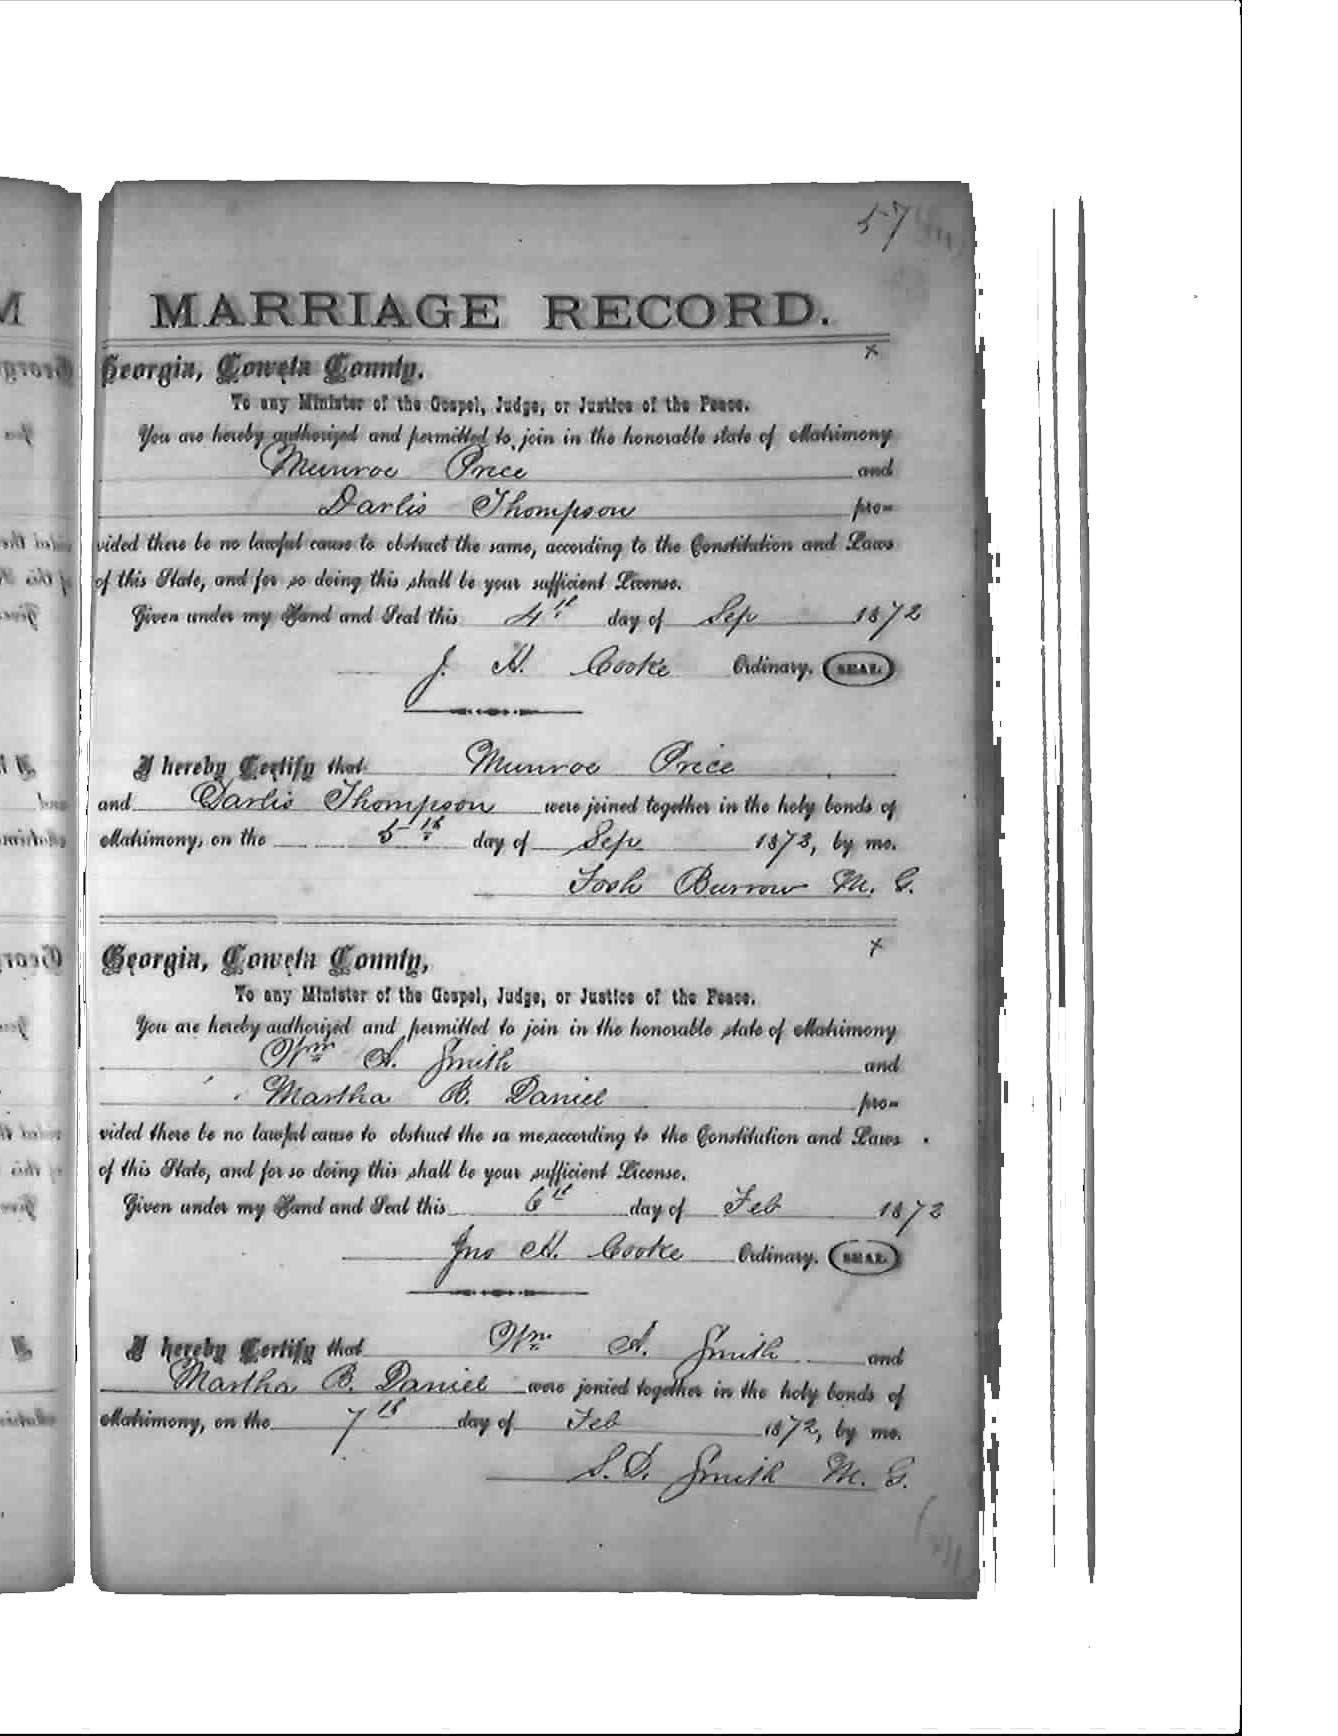 57
MARRIAGE RECORD.
Georgia, Coweta County.
To any Minister of the Gospel, Judge, or Justice of the Peace.
You are hereby authorized and permitted to join in the honorable state of Matrimony
Munroe Price and
Darlis Thompson pro-
vided there be no lawful cause to obstruct the same, according to the Constitution and Laws
of this State, and for so doing this shall be your sufficient License.
Given under my Hand and Seal this 4th day of Sep 1872
J. H. Cooke Ordinary. SEAL.
I hereby Certify that Munroe Price
and Darlis Thompson were joined together in the holy bonds of
Matrimony, on the 5th day of Sep 1873, by me.
Burrow M. G.
Georgia, Coweta County,
To any Minister of the Gospel, Judge, or Justice of the Peace.
You are hereby authorized and permitted to join in the honorable state of Matrimony
Wm A. Smith and
Martha B. Daniel pro-
vided there be no lawful cause to obstruct the sa me,according to the Constitution and Laws
of this State, and for so doing this shall be your sufficient License.
Given under my Hand and Seal this 6th day of Feb 1872
Jno H. Cooke Ordinary. SEAL.
I hereby Certify that Wm A. Smith and
Martha B. Daniel were jonied together in the holy bonds of
Matrimony, on the 7th day of Feb 1872, by me.
S. D. Smith M. G.